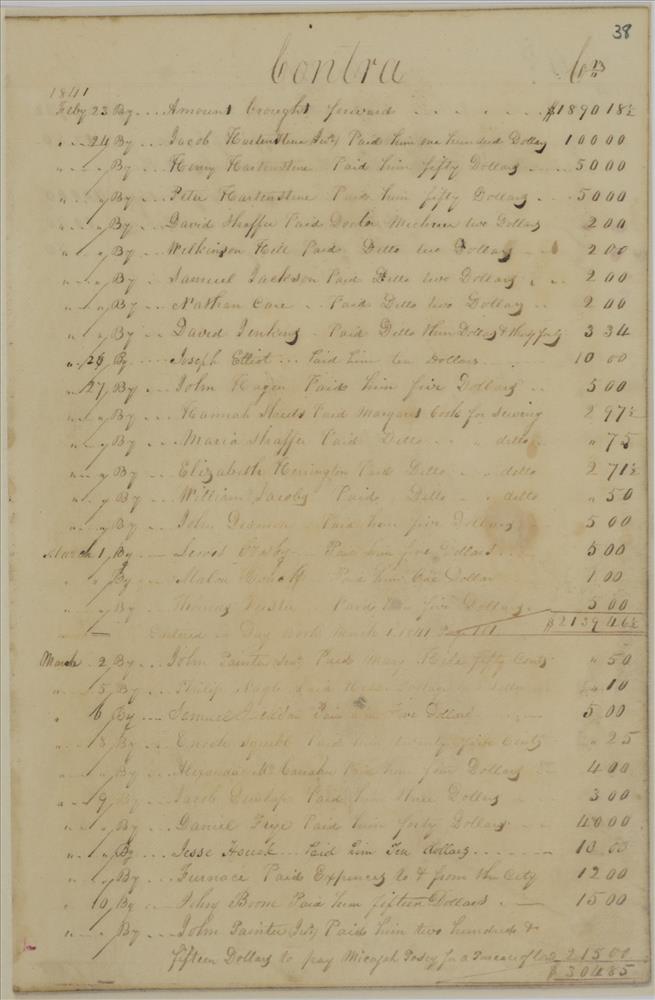 38
Contra Crs
1841
Feby 23 By Amount brought forward $1890 18½
" 24 By Jacob Hartenstine Junr Paid him one hundred Dollars 100 00
" " By Henry Hartenstine Paid him fifty Dollars 50 00
" " By Peter Hartenstine Paid him fifty Dollars 50 00
" " By David Shaffer Paid Doctor two Dollars 2 00
" " By Wilkinson Hill Paid Ditto two Dollars 2 00
" " By Samuel Jackson Paid Ditto two Dollars 2 00
" " By Nathan Care Paid Ditto two Dollars 2 00
" " By David Jenkins Paid Ditto three Dollars & thirty four 3 34
" 26 By Joseph Elliot Paid him ten Dollars 10 00
" 27 By John Hagen Paid him five Dollars 5 00
" " By Hannah Sheets Paid Margaret Cook for Sewing 2 97½
" " By Maria Shaffer Paid Ditto " ditto " 75
" " By Elizabeth Herrington Paid Ditto " ditto 2 71½
" " By William Jacobs Paid Ditto " ditto " 50
" " By John Paid him five Dollars 5 00
March 1 By Lewis Paid him five Dollars 5 00
" " By Paid him One Dollar 1 00
" " By Thomas Paid him five Dollars 5 00
Entered in Day Book March 1 1841 Page $2139 46½
March 2 By John Painter Senr Paid Mary fifty Cents " 50
" 5 By Philip Paid 10
" 6 By Samuel Jackson Paid him five Dollars 5 00
" 8 By Enoch Paid him twenty five Cents " 25
" " By Alexander Mc Paid him four Dollars 4 00
" 9 By Jacob Dunlap Paid him three Dollars 3 00
" " By Daniel Frye Paid him forty Dollars 40 00
" " By Jesse Houck Paid him Ten dollars 10 00
" " By Furnace Paid Expences to & from the City 12 00
" 10 By John Boom Paid him fifteen Dollars 15 00
" " By John Painter Junr Paid him two hundred &
fifteen Dollars to pay Micajah Posey for a 215 00
$ 304 85